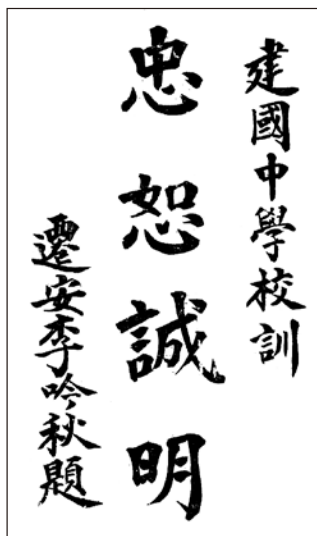 建國中學校訓
忠恕誠明
遷安李吟秋題